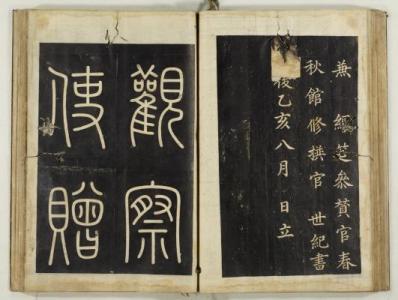 兼 經筵叅贊官春
秋館修撰官 世紀書
後乙亥八月 日立
觀察
使贈